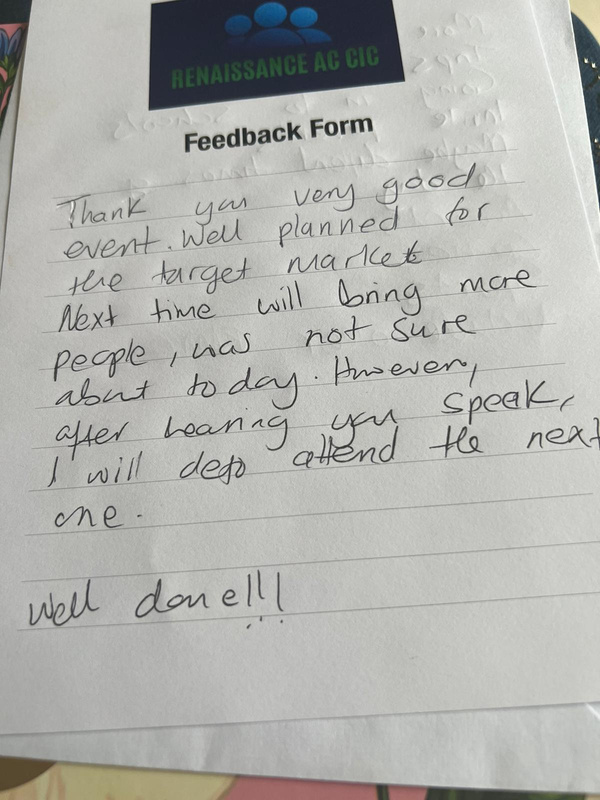 RENAISSANCE AC CIC
Feedback Form
Thank you very good
event. Well planned for
the target market
Next time will bring more
people, was not sure
about today. However,
after hearing you speak,
I will defo attend the next
one.
Well done!!!